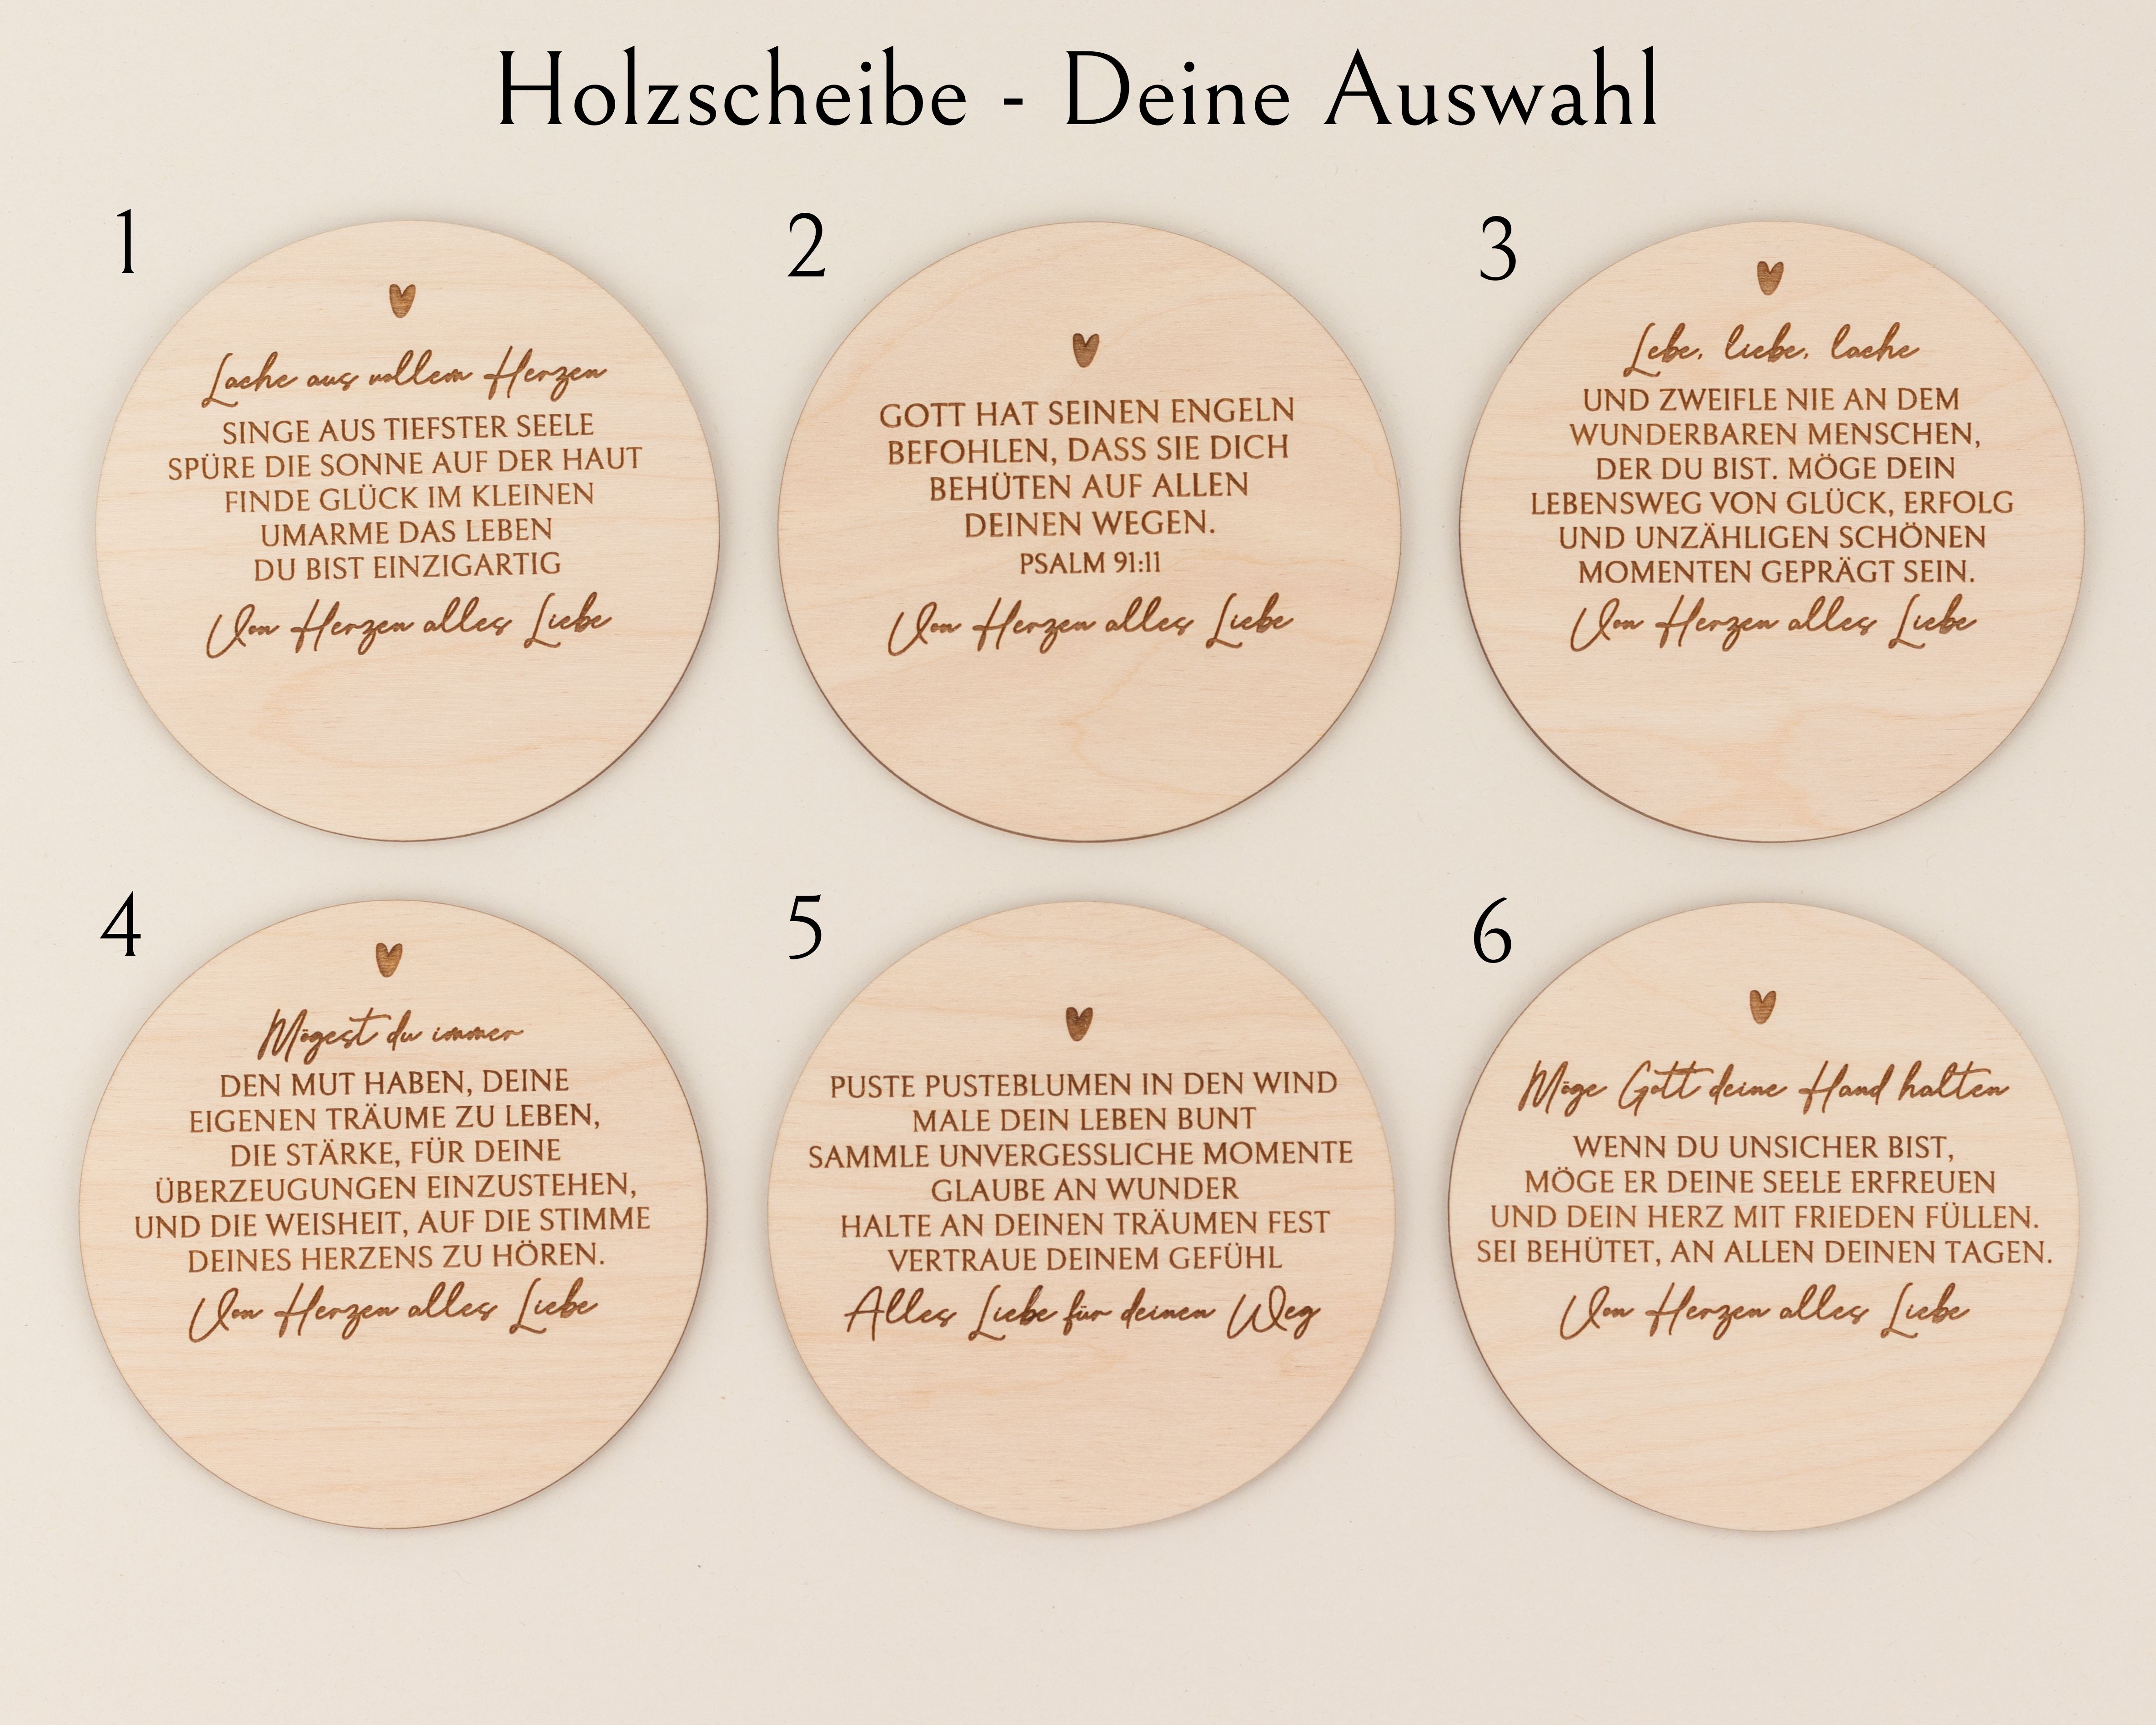 Holzscheibe - Deine Auswahl
1
Lache aus vollem Herzen
SINGE AUS TIEFSTER SEELE
SPÜRE DIE SONNE AUF DER HAUT
FINDE GLÜCK IM KLEINEN
UMARME DAS LEBEN
DU BIST EINZIGARTIG
Von Herzen alles Liebe
2
GOTT HAT SEINEN ENGELN
BEFOHLEN, DASS SIE DICH
BEHÜTEN AUF ALLEN
DEINEN WEGEN.
PSALM 91:11
Von Herzen alles Liebe
3
Lebe, liebe, lache
UND ZWEIFLE NIE AN DEM
WUNDERBAREN MENSCHEN,
DER DU BIST. MÖGE DEIN
LEBENSWEG VON GLÜCK, ERFOLG
UND UNZÄHLIGEN SCHÖNEN
MOMENTEN GEPRÄGT SEIN.
Von Herzen alles Liebe
4
Mögest du immer
DEN MUT HABEN, DEINE
EIGENEN TRÄUME ZU LEBEN,
DIE STÄRKE, FÜR DEINE
ÜBERZEUGUNGEN EINZUSTEHEN,
UND DIE WEISHEIT, AUF DIE STIMME
DEINES HERZENS ZU HÖREN.
Von Herzen alles Liebe
5
PUSTE PUSTEBLUMEN IN DEN WIND
MALE DEIN LEBEN BUNT
SAMMLE UNVERGESSLICHE MOMENTE
GLAUBE AN WUNDER
HALTE AN DEINEN TRÄUMEN FEST
VERTRAUE DEINEM GEFÜHL
Alles Liebe für deinen Weg
6
Möge Gott deine Hand halten
WENN DU UNSICHER BIST,
MÖGE ER DEINE SEELE ERFREUEN
UND DEIN HERZ MIT FRIEDEN FÜLLEN.
SEI BEHÜTET, AN ALLEN DEINEN TAGEN.
Von Herzen alles Liebe